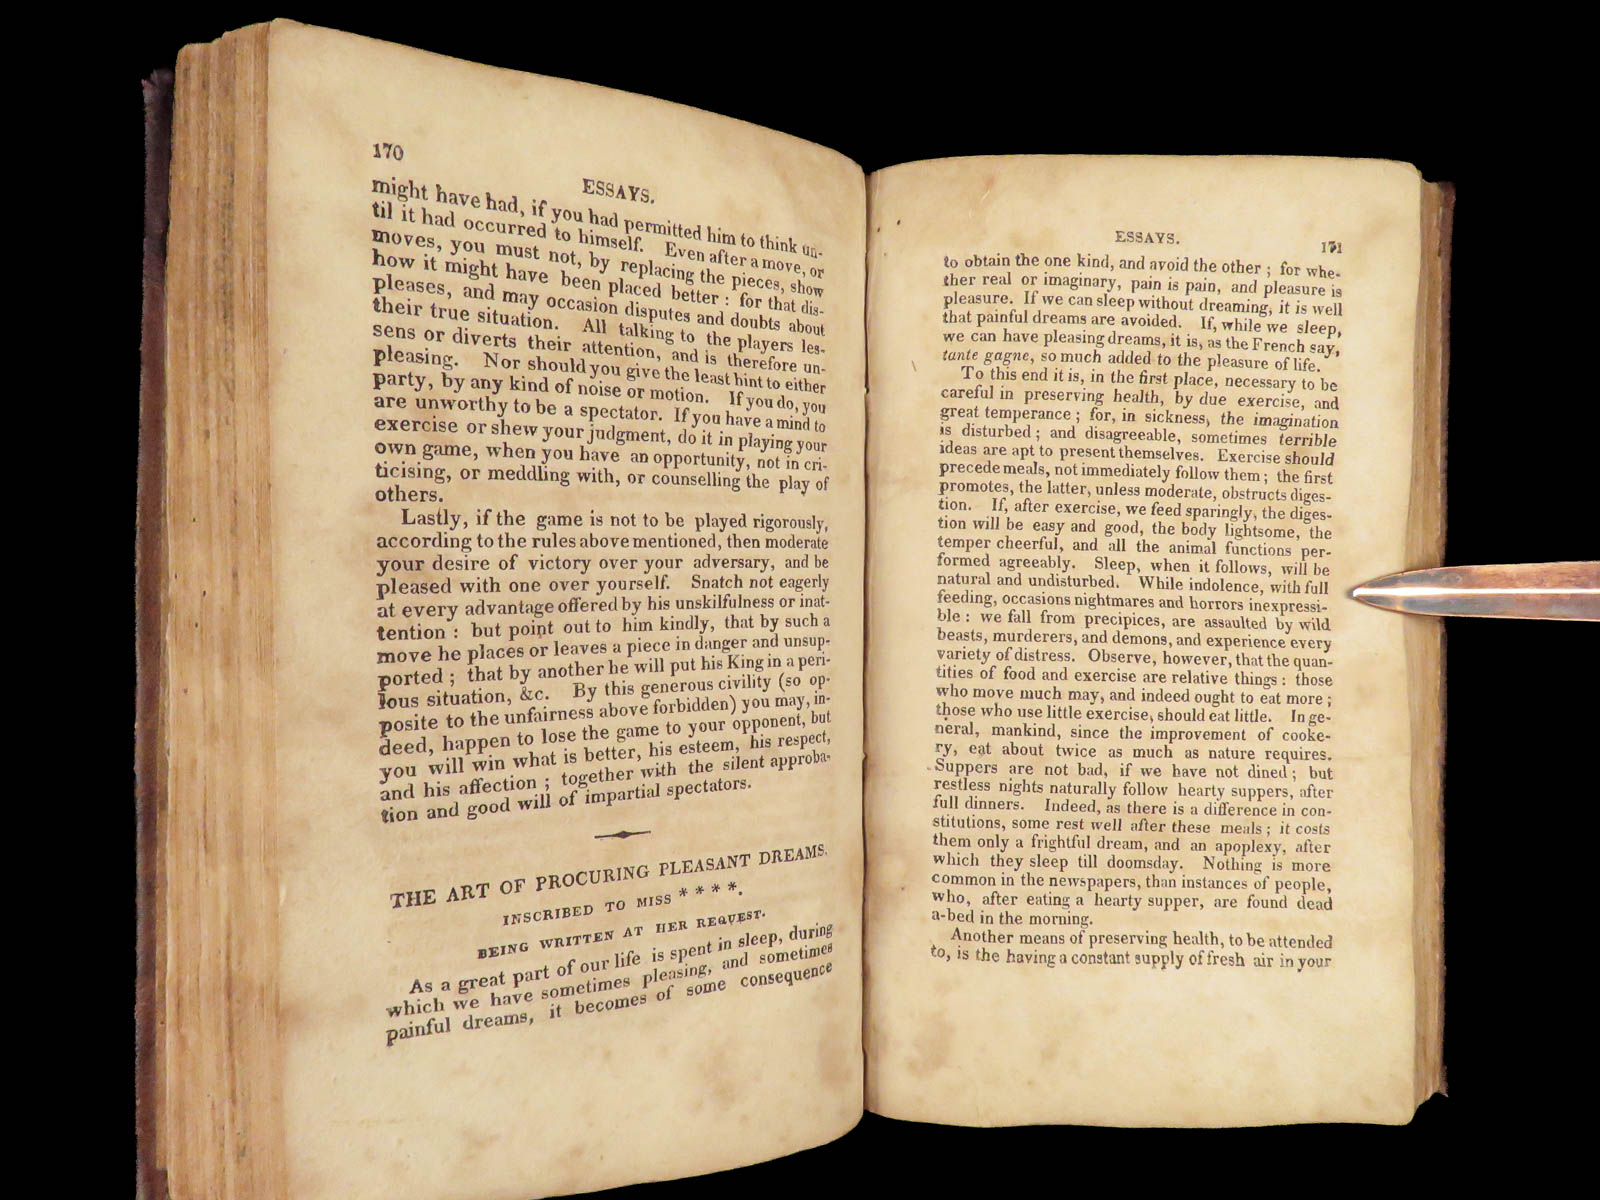 170
ESSAYS.
might have had, if you had permitted him to think un-
til it had occurred to himself. Even after a move, or
moves, you must not, by replacing the pieces, show
how it might have been placed better : for that dis-
pleases, and may occasion disputes and doubts about
their true situation. All talking to the players les-
sens or diverts their attention, and is therefore un-
pleasing. Nor should you give the least hint to either
party, by any kind of noise or motion. If you do, you
are unworthy to be a spectator. If you have a mind to
exercise or shew your judgment, do it in playing your
own game, when you have an opportunity, not in cri-
ticising, or meddling with, or counselling the play of
others.
Lastly, if the game is not to be played rigorously,
according to the rules above mentioned, then moderate
your desire of victory over your adversary, and be
pleased with one over yourself. Snatch not eagerly
at every advantage offered by his unskilfulness or inat-
tention : but point out to him kindly, that by such a
move he places or leaves a piece in danger and unsup-
ported ; that by another he will put his King in a peri-
lous situation, &c. By this generous civility (so op-
posite to the unfairness above forbidden) you may, in-
deed, happen to lose the game to your opponent, but
you will win what is better, his esteem, his respect,
and his affection ; together with the silent approba-
tion and good will of impartial spectators.
THE ART OF PROCURING PLEASANT DREAMS.
INSCRIBED TO MISS * * * *.
BEING WRITTEN AT HER REQUEST.
As a great part of our life is spent in sleep, during
which we have sometimes pleasing, and sometimes
painful dreams, it becomes of some consequence
ESSAYS.
171
to obtain the one kind, and avoid the other ; for whe-
ther real or imaginary, pain is pain, and pleasure is
pleasure. If we can sleep without dreaming, it is well
that painful dreams are avoided. If, while we sleep,
we can have pleasing dreams, it is, as the French say,
tante gagne, so much added to the pleasure of life.
To this end it is, in the first place, necessary to be
careful in preserving health, by due exercise, and
great temperance ; for, in sickness, the imagination
is disturbed ; and disagreeable, sometimes terrible
ideas are apt to present themselves. Exercise should
precede meals, not immediately follow them ; the first
promotes, the latter, unless moderate, obstructs diges-
tion. If, after exercise, we feed sparingly, the diges-
tion will be easy and good, the body lightsome, the
temper cheerful, and all the animal functions per-
formed agreeably. Sleep, when it follows, will be
natural and undisturbed. While indolence, with full
feeding, occasions nightmares and horrors inexpressi-
ble : we fall from precipices, are assaulted by wild
beasts, murderers, and demons, and experience every
variety of distress. Observe, however, that the quan-
tities of food and exercise are relative things : those
who move much may, and indeed ought to eat more ;
those who use little exercise, should eat little. In ge-
neral, mankind, since the improvement of cooke-
ry, eat about twice as much as nature requires.
Suppers are not bad, if we have not dined ; but
restless nights naturally follow hearty suppers, after
full dinners. Indeed, as there is a difference in con-
stitutions, some rest well after these meals ; it costs
them only a frightful dream, and an apoplexy, after
which they sleep till doomsday. Nothing is more
common in the newspapers, than instances of people,
who, after eating a hearty supper, are found dead
a-bed in the morning.
Another means of preserving health, to be attended
to, is the having a constant supply of fresh air in your